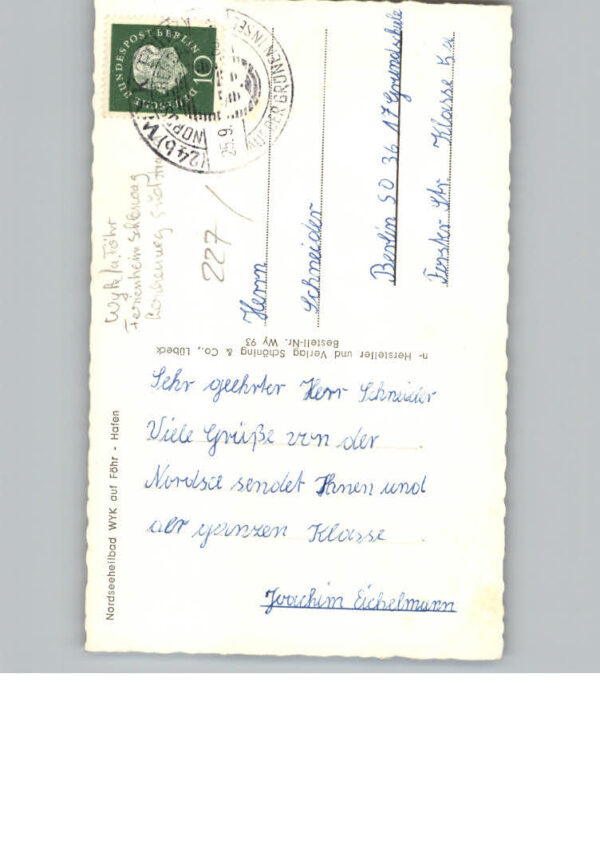 DEUTSCHE BUNDESPOST BERLIN
10
(24b) W
25.9.
AUF DER GRÜNEN INSEL
Wyk/a. Föhr
Ferienheim Schöneberg
227 /
Herrn
Schneider
Berlin SO 36 17 Grundschule
Forster Str. Klasse 5a
n- Hersteller und Verlag Schöning & Co., Lübeck
Bestell-Nr. Wy 93
Nordseeheilbad WYK auf Föhr - Hafen
Sehr geehrter Herr Schneider
Viele Grüße von der
Nordsee sendet Ihnen und
der ganzen Klasse
Joachim Eichelmann